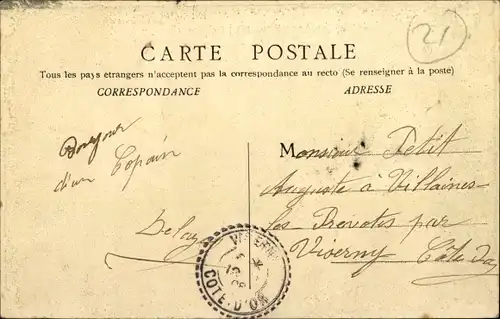 21
CARTE POSTALE
Tous les pays etrangers n'acceptent pas la correspondance au recto (Se renseigner à la poste)
CORRESPONDANCE
ADRESSE
Bonjour
d'un Copain
Delay
Monsieur Petit
Auguste à Villaines-
les Prevotes par
Viserny Côte d'or
COTE-D'OR